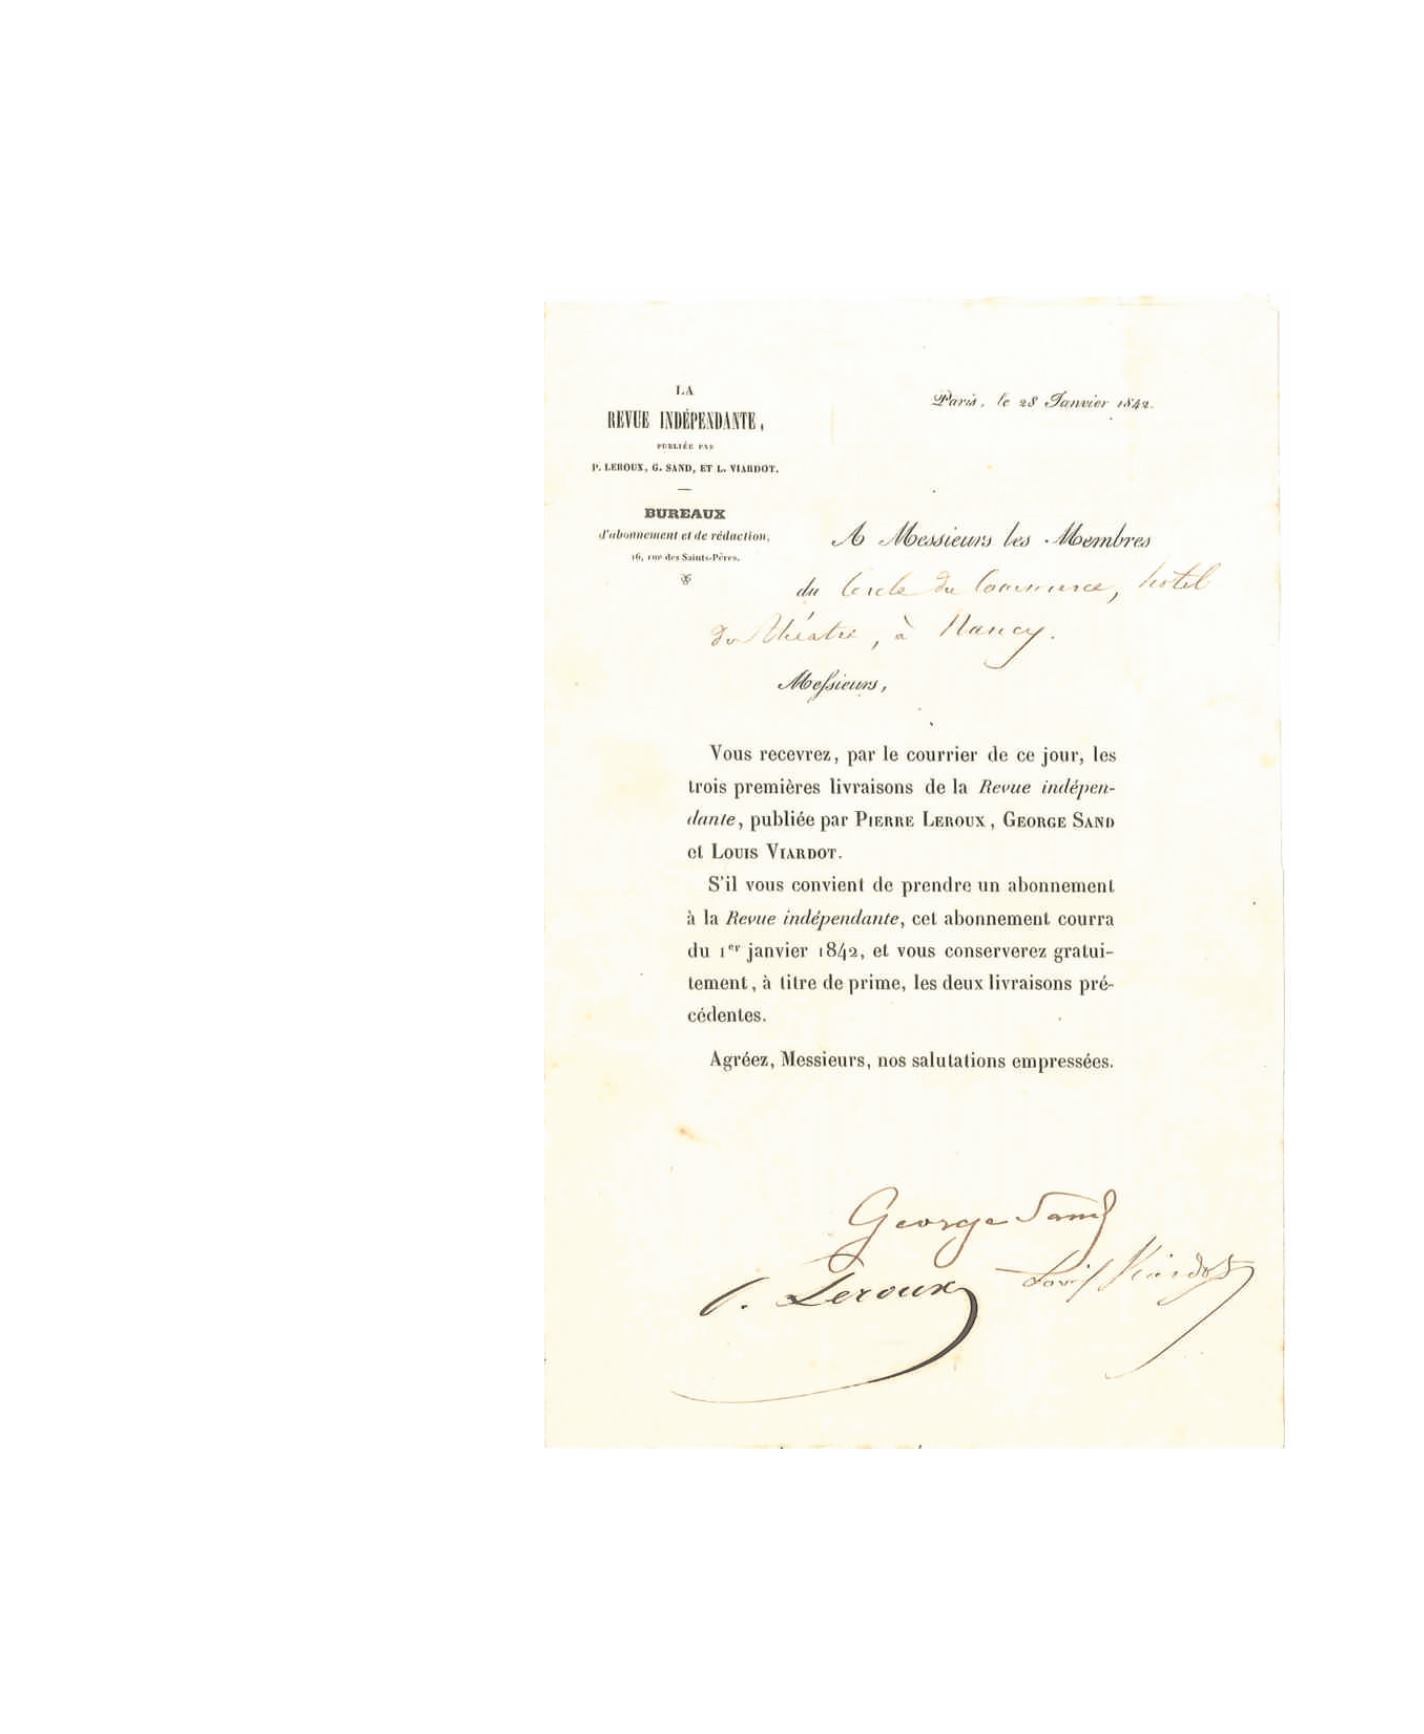 LA
REVUE INDÉPENDANTE,
PUBLIÉE PAR
P. LEROUX, G. SAND, ET L. VIARDOT.
BUREAUX
d'abonnement et de rédaction,
16, rue des Saints-Pères.
Paris, le 28 Janvier 1842.
A Messieurs les Membres
du Cercle du Commerce, hotel
du Théatre, à Nancy.
Messieurs,
Vous recevrez, par le courrier de ce jour, les
trois premières livraisons de la Revue indépen-
dante, publiée par PIERRE LEROUX, GEORGE SAND
et LOUIS VIARDOT.
S'il vous convient de prendre un abonnement
à la Revue indépendante, cet abonnement courra
du 1er janvier 1842, et vous conserverez gratui-
tement, à titre de prime, les deux livraisons pré-
cédentes.
Agréez, Messieurs, nos salutations empressées.
George Sand
P. Leroux
Louis Viardot